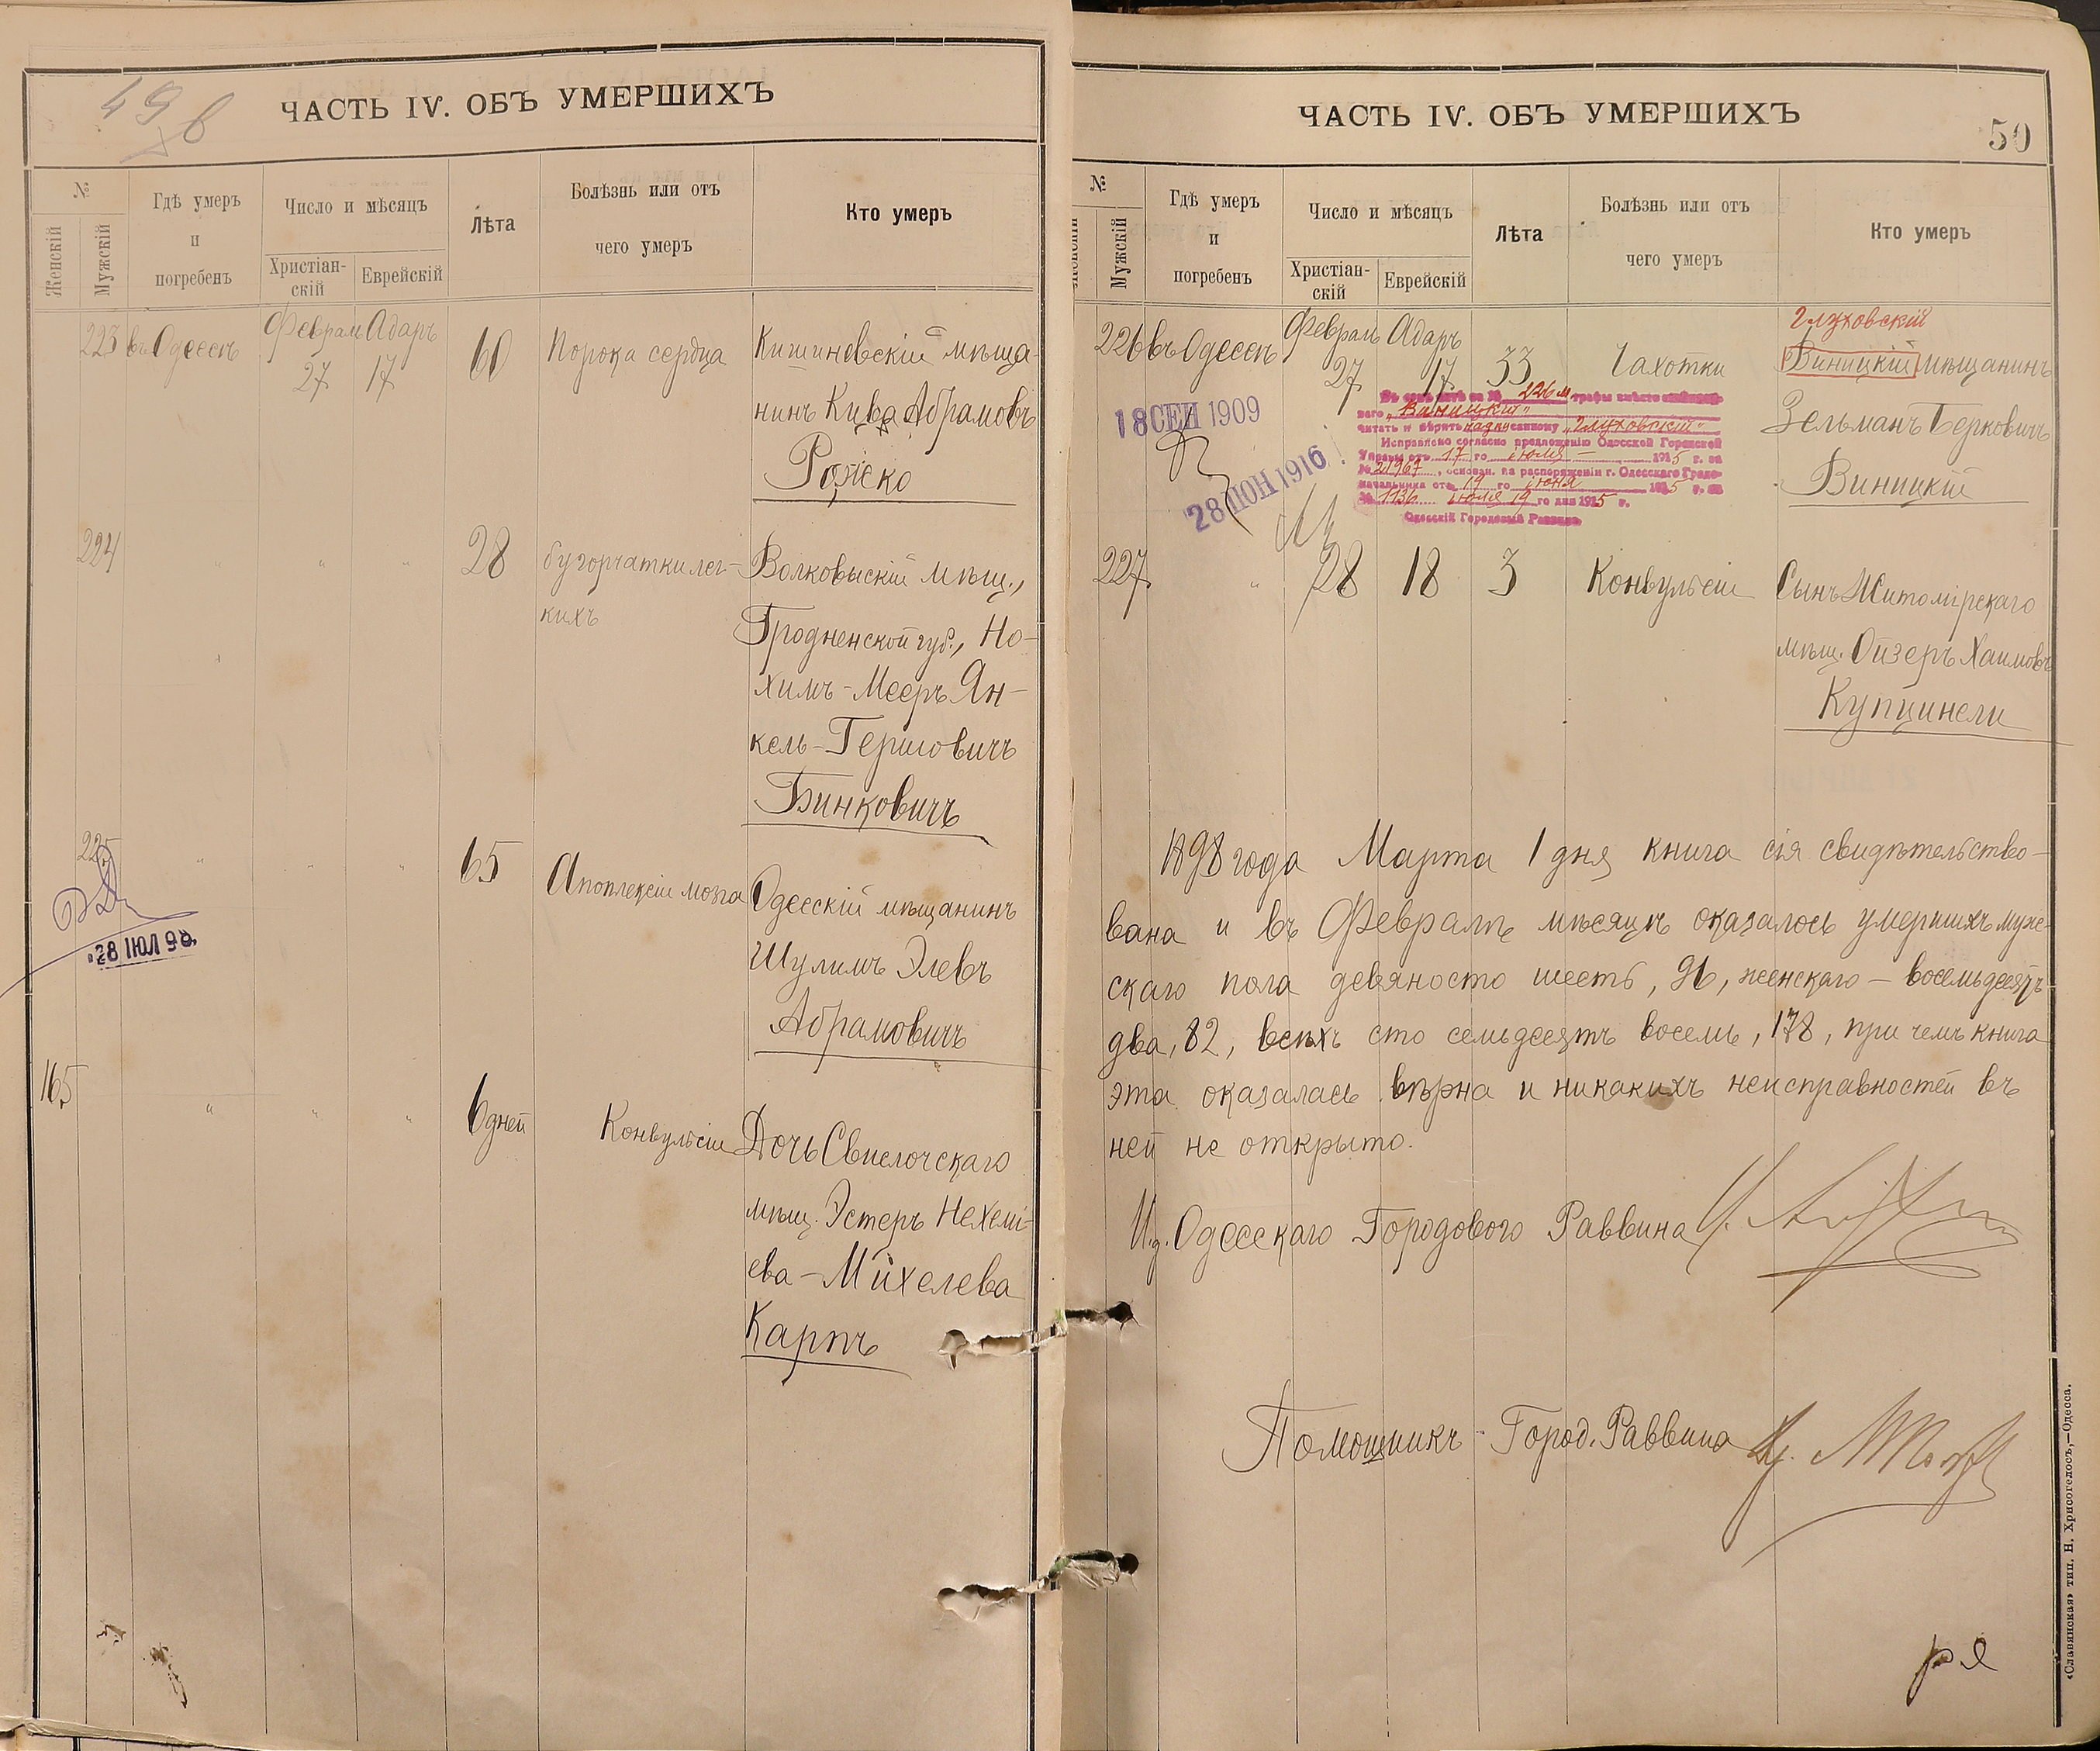 49 в
ЧАСТЬ IV. ОБЪ УМЕРШИХЪ
№
Женскій
Мужскій
Гдѣ умеръ
и
погребенъ
Число и мѣсяцъ
Христіан-
скій
Еврейскій
Лѣта
Болѣзнь или отъ
чего умеръ
Кто умеръ
223 въ Одессѣ Феврал Адаръ 60 Порока сердца Кишиневскій мѣща-
27 17 нинъ Кива Абрамовъ
Ройско
224 " " " 28 бугорчатки лег- Волковыскій мѣщ.,
кихъ Гродненской губ., Но-
химъ-Мееръ Ян-
кель-Гершовичъ
Бинковичъ
225 " " " 65 Апоплексіи мозга Одесскій мѣщанинъ
28 ІЮЛ 98 Шулимъ Элевъ
Абрамовичъ
165 " " " 6 дней Конвульсіи Дочь Свислочскаго
мѣщ. Эстеръ Нехемі-
ева-Михелева
Карпъ
ЧАСТЬ IV. ОБЪ УМЕРШИХЪ
50
№
Мужскій
Гдѣ умеръ
и
погребенъ
Число и мѣсяцъ
Христіан-
скій
Еврейскій
Лѣта
Болѣзнь или отъ
чего умеръ
Кто умеръ
Глуховскій
226 въ Одессѣ Феврал Адаръ 33 Чахотки Виницкій мѣщанинъ
27 17 Зельманъ Берковичъ
Виницкій
18 СЕН 1909
28 ІЮН 1916
226 м графы вмѣсто
"Виницкій"
читать и вѣрить надписанному "Глуховскій"
Исправлено согласно предложенію Одесской Городской
Управы отъ 17 го іюля - 1915 г. за
№ 21967, основан. на распоряженіи г. Одесскаго Градо-
начальника отъ 19 го іюня 1915 г. за
№ 1136 іюля 19 го дня 1915 г.
Одесскій Городовый Раввинъ
227 " 28 18 3 Конвульсіи Сынъ Житомірскаго
мѣщ. Ойзеръ Хаимовъ
Купцинели
1898 года Марта 1 дня книга сія свидѣтельство-
вана и въ Февралѣ мѣсяцѣ оказалось умершихъ муж-
скаго пола девяносто шесть, 96, женскаго - восемьдесятъ
два, 82, всѣхъ сто семьдесятъ восемь, 178, при чемъ книга
эта оказалась вѣрна и никакихъ неисправностей въ
ней не открыто.
И.д. Одесскаго Городового Раввина
Помощникъ Город. Раввина
«Славянская» тип. Н. Хрисогелосъ,—Одесса.